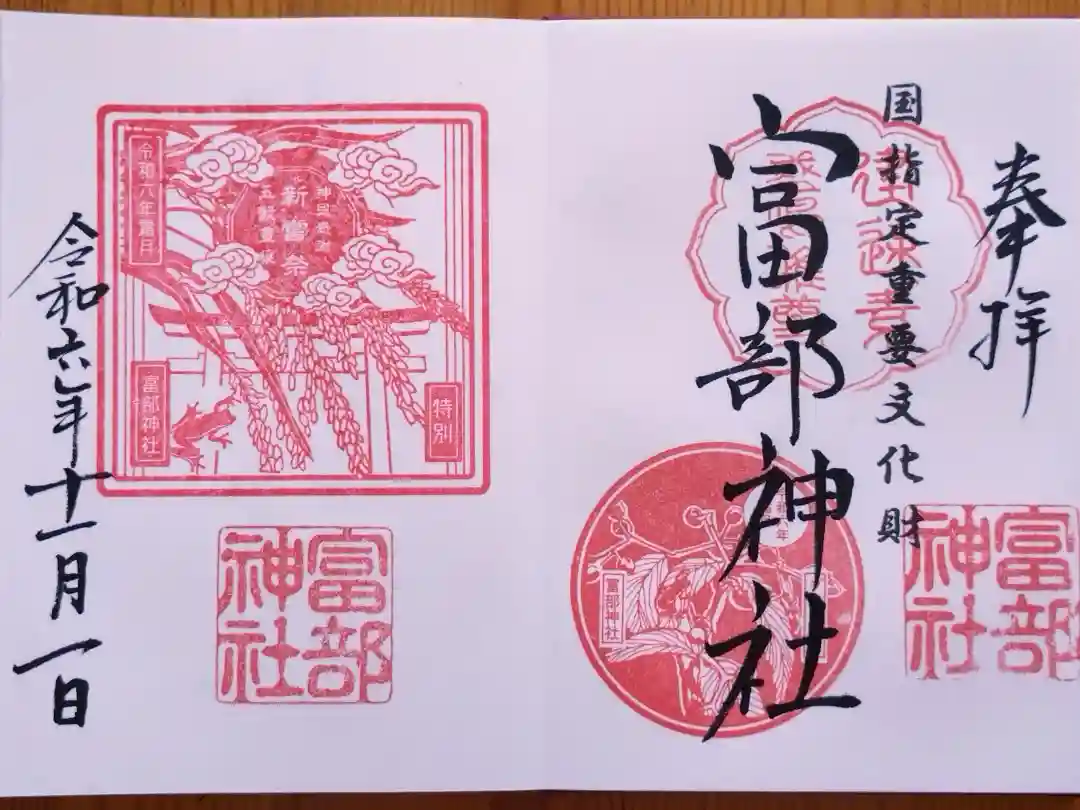 奉拝
国指定重要文化財
富部神社
富部
神社
富部神社
神恩感謝
新嘗祭
五穀豊穣
令和六年霜月
特別
富部神社
富部
神社
令和六年十一月一日